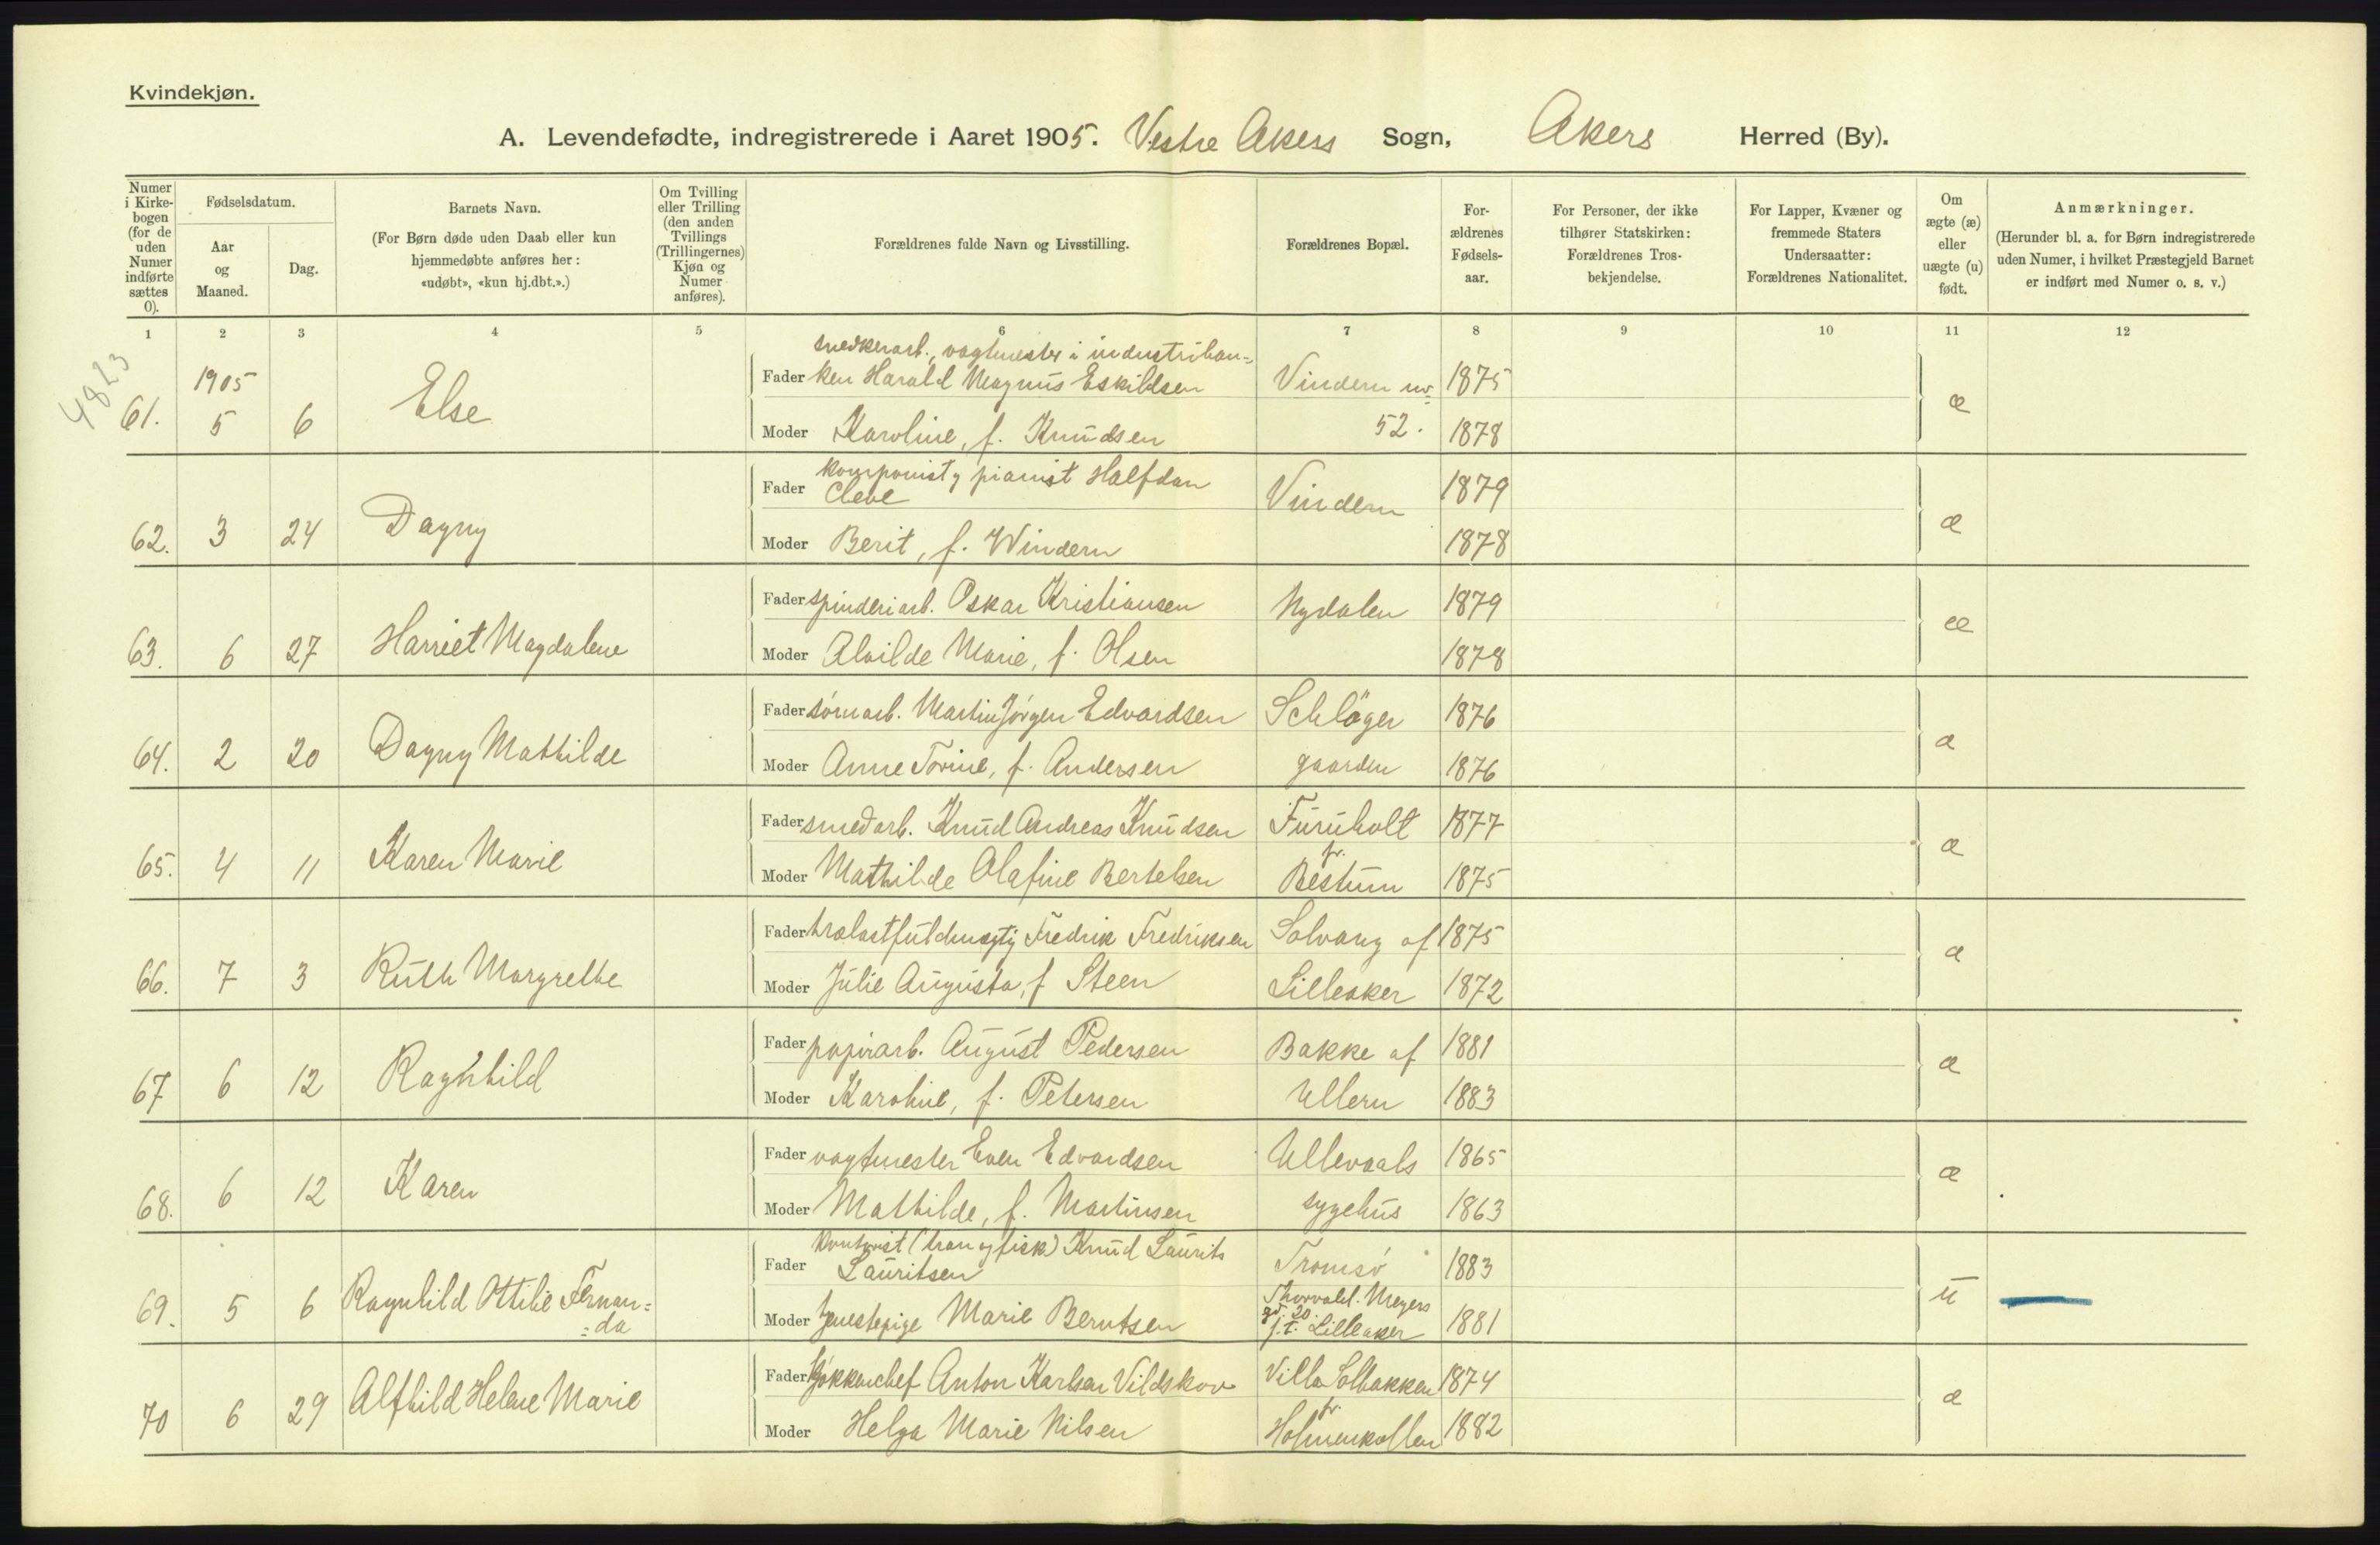 Kvindekjøn.
A. Levendefødte, indregistrerede i Aaret 1905. Vestre Akers Sogn, Akers Herred (By).
Numer i Kirkebogen (for de uden Numer indførte sættes 0).
Fødselsdatum.
Aar og Maaned.
Dag.
Barnets Navn.
(For Børn døde uden Daab eller kun hjemmedøbte anføres her: «udøbt», «kun hj.dbt.».)
Om Tvilling eller Trilling (den anden Tvillings (Trillingernes) Kjøn og Numer anføres).
Forældrenes fulde Navn og Livsstilling.
Forældrenes Bopæl.
Forældrenes Fødselsaar.
For Personer, der ikke tilhører Statskirken: Forældrenes Trosbekjendelse.
For Lapper, Kvæner og fremmede Staters Undersaatter: Forældrenes Nationalitet.
Om ægte (æ) eller uægte (u) født.
Anmærkninger.
(Herunder bl. a. for Børn indregistrerede uden Numer, i hvilket Præstegjeld Barnet er indført med Numer o. s. v.)
1 2 3 4 5 6 7 8 9 10 11 12
4823
snedkerarb., vagtmester i industriban=
1905 Fader ken Harald Magnus Eskildsen Vindern nr. 1875
61. 5 6 Else æ
Moder Karoline, f. Knudsen 52. 1878
Fader komponist, pianist Halfdan Cleve Vindern 1879
62. 3 24 Dagny æ
Moder Berit, f. Windern 1878
Fader spinderiarb. Oskar Kristiansen Nydalen 1879
63. 6 27 Harriet Magdalene æ
Moder Alvilde Marie, f. Olsen 1878
Fader sömarb. Martin Jörgen Edvardsen Schläger 1876
64. 2 20 Dagny Mathilde æ
Moder Anne Torine, f. Andersen gaarden 1876
Fader smedarb. Knud Andreas Knudsen Furuholt 1877
65. 4 11 Karen Marie pr. æ
Moder Mathilde Olafine Bertelsen Bestum 1875
Fader Fredrik Fredriksen Solvang af 1875
66. 7 3 Ruth Margrethe æ
Moder Julie Augusta, f Steen Lilleaker 1872
Fader papirarb. August Pedersen Bakke af 1881
67 6 12 Ragnhild æ
Moder Karoline, f. Petersen Ullern 1883
Fader vagtmester Even Edvardsen Ullevaals 1865
68. 6 12 Karen æ
Moder Mathilde, f. Martinsen sygehus 1863
Fader kontorist (tran og fisk) Knud Laurits Lauritsen Tromsö 1883
69. 5 6 Ragnhild Ottilie Fernan=
=da u
Moder tjenestepige Marie Berntsen Thorvald. Meyers gd. 20. f.t. Lilleaker 1881
Fader kjøkkenchef Anton Karlsen Vildskov Villa Solbakken 1874
70 6 29 Alfhild Helene Marie pr. æ
Moder Helga Marie Nilsen Holmenkollen 1882